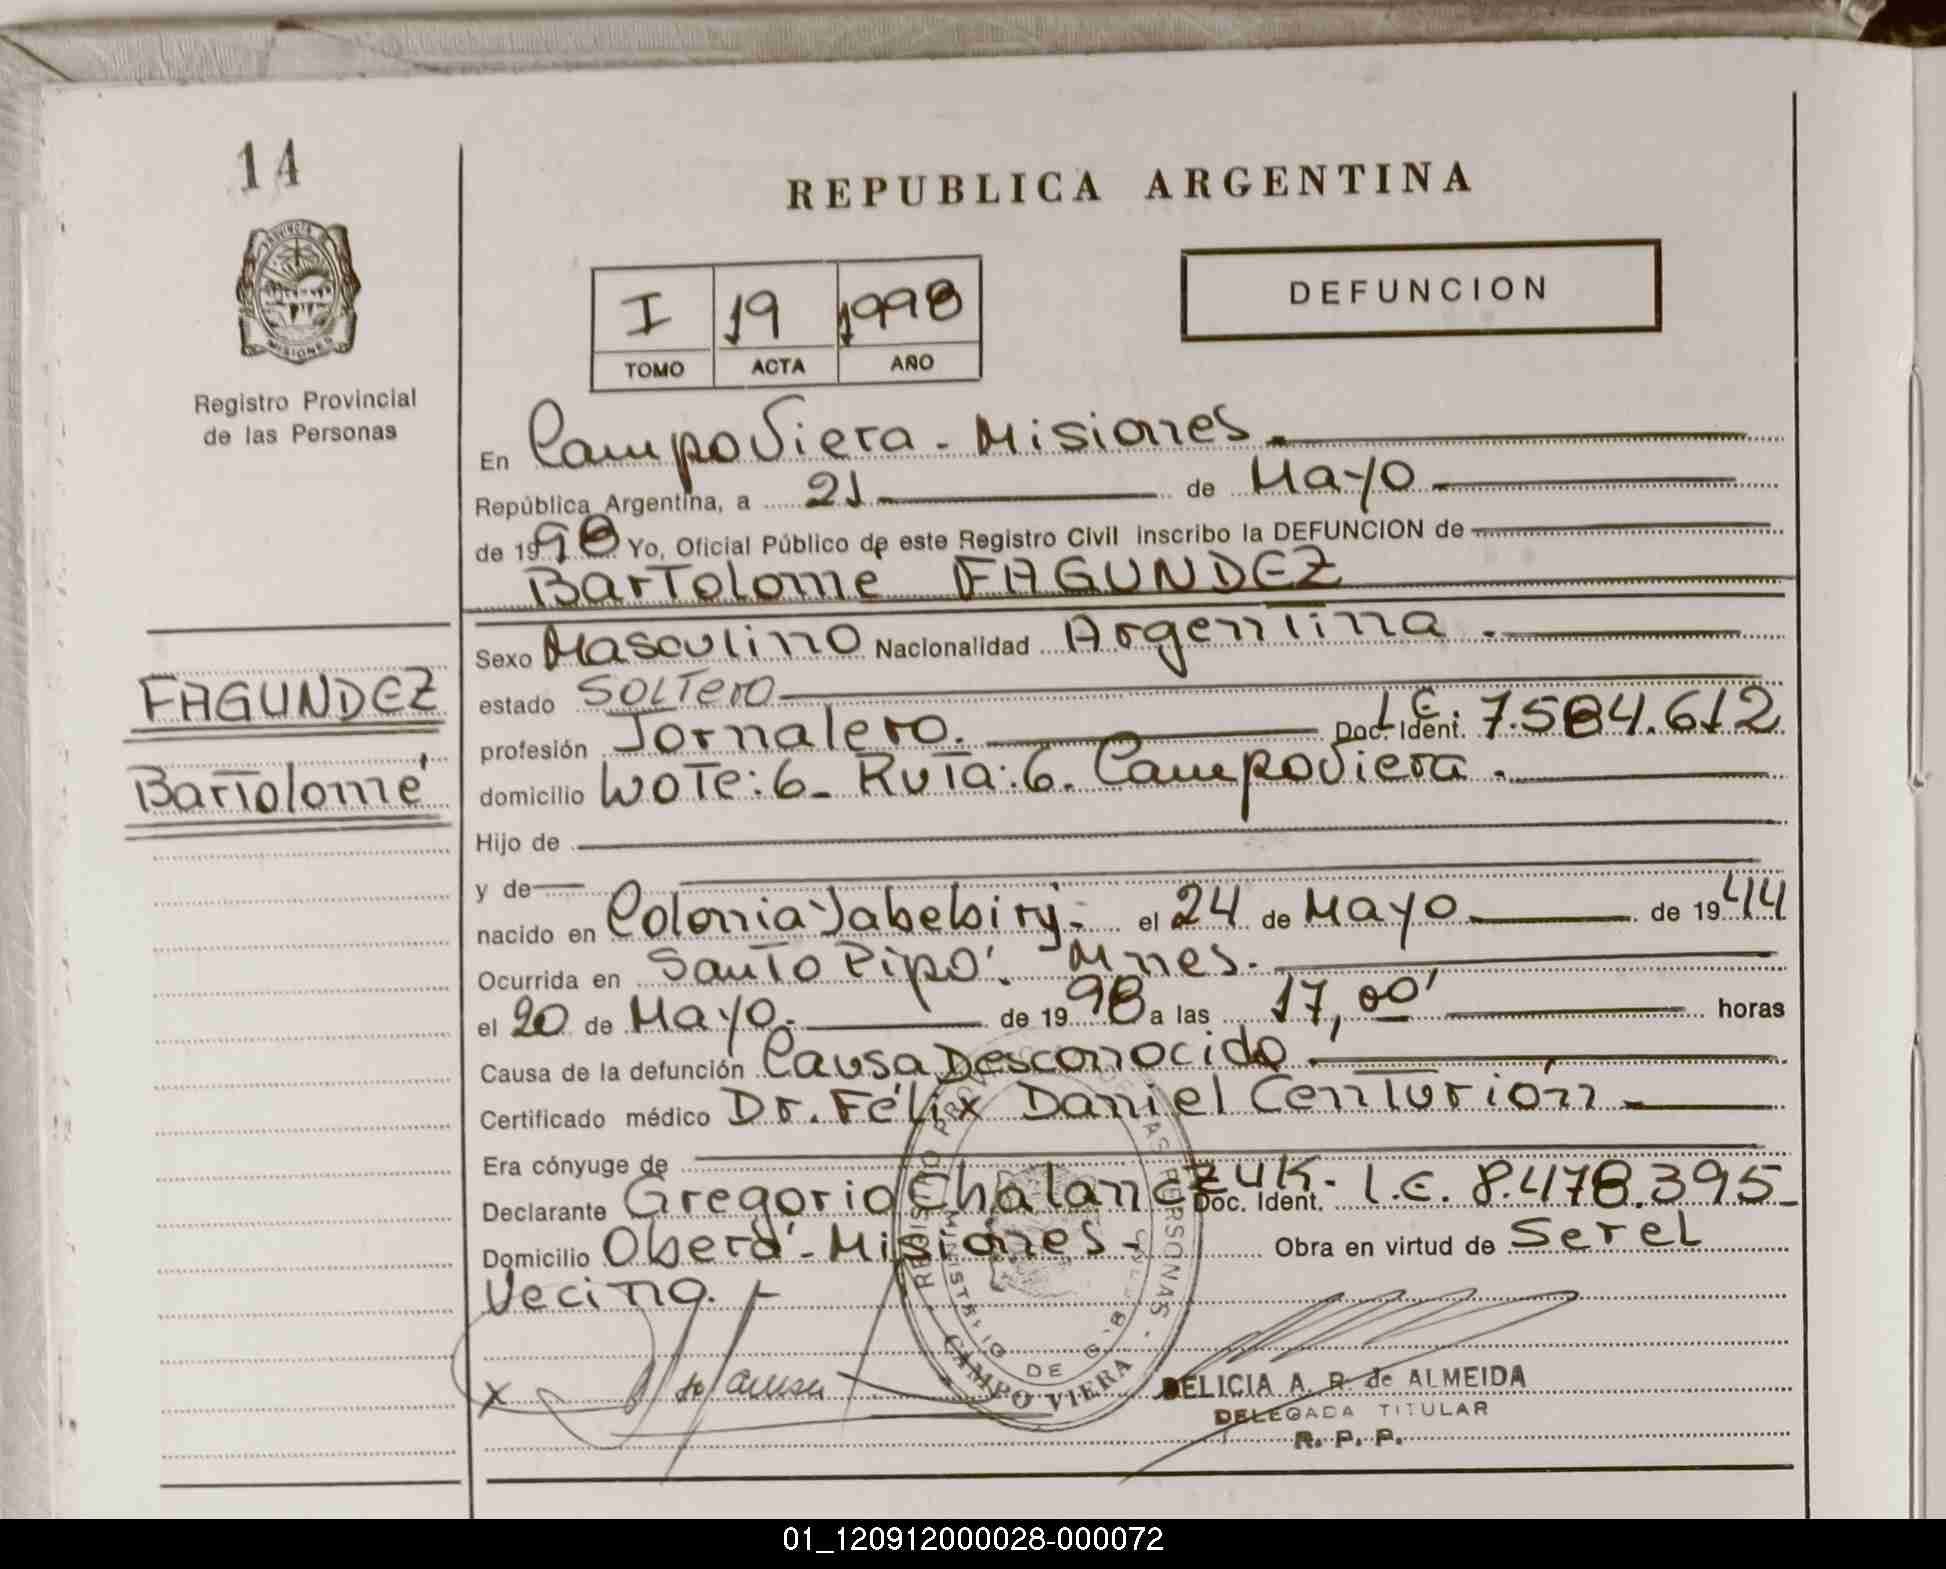 14
REPUBLICA ARGENTINA
PROVINCIA
MISIONES
Registro Provincial
de las Personas
I 19 1998
TOMO ACTA AÑO
DEFUNCION
En Campo Viera - Misiones.
República Argentina, a 21 de Mayo
de 1998 Yo, Oficial Público de este Registro Civil inscribo la DEFUNCION de
Bartolome FAGUNDEZ
FAGUNDEZ
Bartolomé
Sexo Masculino Nacionalidad Argentina.
estado SOLTero
profesión Jornalero. Doc. Ident. L.E. 7.584.612
domicilio LOTe: 6_ RuTa: 6. Campo Viera.
Hijo de
y de
nacido en Colonia Yabebiry- el 24 de Mayo de 1944
Ocurrida en Santo Pipó. Mnes.
el 20 de Mayo. de 1998 a las 17,00' horas
Causa de la defunción Causa Desconocido.
Certificado médico Dr. Félix Daniel Centurión
Era cónyuge de
Declarante Gregorio Chalanczuk. Doc. Ident. L.E. 8.478.395_
Domicilio Oberá - Misiones - Obra en virtud de Serel
Vecino.
x
REGISTRO PROVINCIAL DE LAS PERSONAS
MINISTERIO DE GOB.
CAMPO VIERA
DELICIA A. R. de ALMEIDA
DELEGADA TITULAR
R. P. P.
01_120912000028-000072